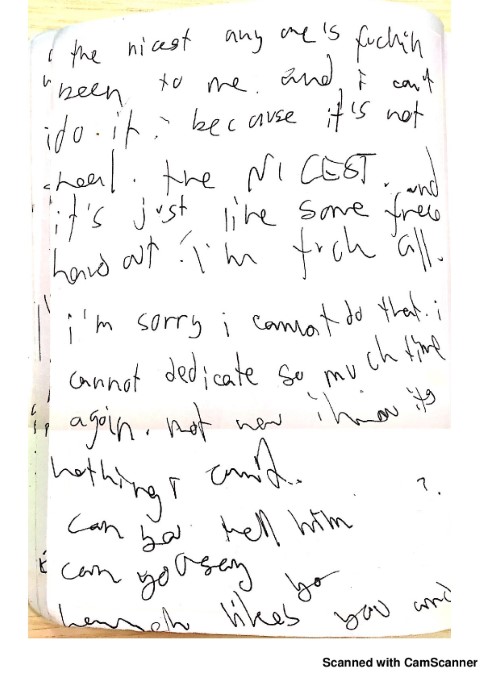 the nicest any one's fuckin
been to me. and i can't
do it. because it's not
real. the NICEST. and
it's just like some free
hand out. I'm fuck all.
i'm sorry i cannot do that. i
cannot dedicate so much time
again. not now i know its
nothing I
can you tell him ?
can you say
hannah likes you and
Scanned with CamScanner